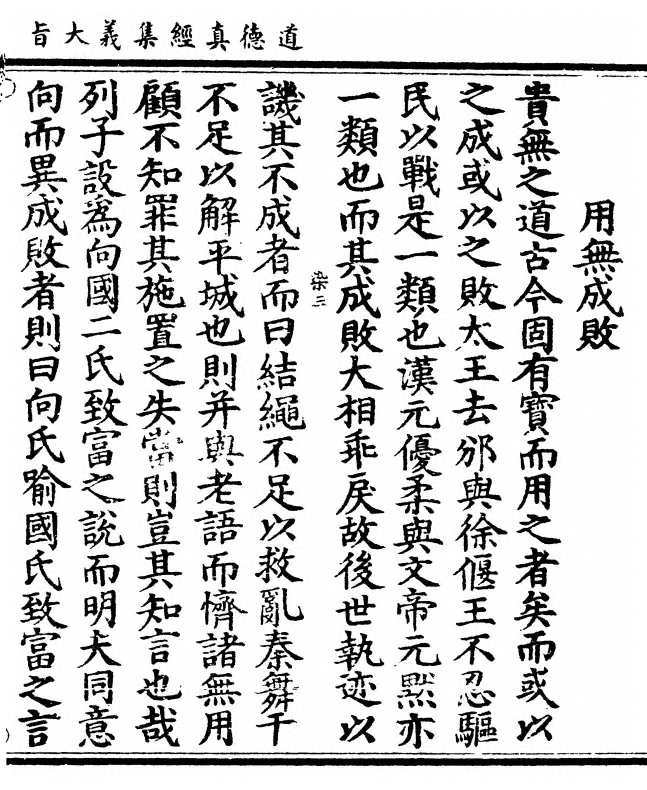 道德真經集義大旨
用無成敗
貴無之道古今固有寶而用之者矣而或以
之成或以之敗太王去邠與徐偃王不忍驅
民以戰是一類也漢元優柔與文帝元默亦
一類也而其成敗大相乖戾故後世執迹以
染三
譏其不成者而曰結繩不足以救亂秦舞干
不足以解平城也則并與老語而懠諸無用
顧不知罪其施置之失當則豈其知言也哉
列子設為向國二氏致富之說而明夫同意
向而異成敗者則曰向氏喻國氏致富之言